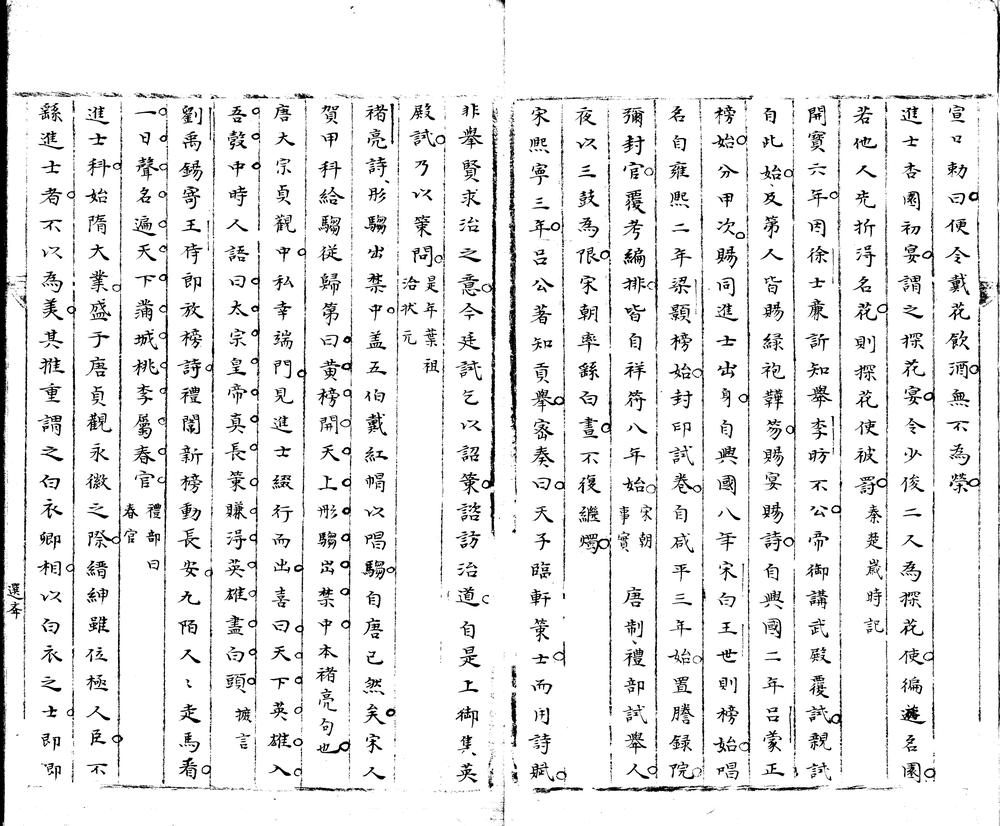 宣口勅曰便令戴花飲酒無不為榮
進士杏園初宴謂之探花宴令少俊二人為探花使徧遊名園
若他人先折得名花則探花使被罸秦楚嵗時記
開寶六年因徐士廉訢知舉李昉不公帝御講武殿覆試親試
自此始及第人皆賜緑袍鞾笏賜宴賜詩自興國二年吕蒙正
榜始分甲次賜同進士出身自興國八年宋白王世則榜始唱
名自雍熙二年梁顥榜始封印試卷自咸平三年始置謄録院
彌封官覆考編排皆自祥符八年始宋朝事實 唐制禮部試舉人
夜以三鼓為限宋朝率餘白晝不復繼燭
宋熙寧三年吕公著知貢舉密奏曰天子臨軒策士而用詩賦
非舉賢求治之意今廷試乞以詔策諮訪治道自是上御集英
殿試乃以策問是年葉祖洽状元
褚亮詩彤騶出禁中盖五伯戴紅帽以唱騶自唐已然矣宋人
賀甲科給騶従歸第曰黄榜開天上彤騶出禁中本褚亮句也
唐太宗貞觀中私幸端門見進士綴行而出喜曰天下英雄入
吾彀中時人語曰太宗皇帝真長策賺淂英雄盡白頭摭言
劉禹錫寄王侍郎放榜詩禮闈新榜動長安九陌人〻走馬看
一日聲名遍天下滿城桃李屬春官禮部曰春官
進士科始隋大業盛于唐貞觀永徽之際縉紳雖位極人臣不
繇進士者不以為美其推重謂之白衣卿相以白衣之士即卽
選舉